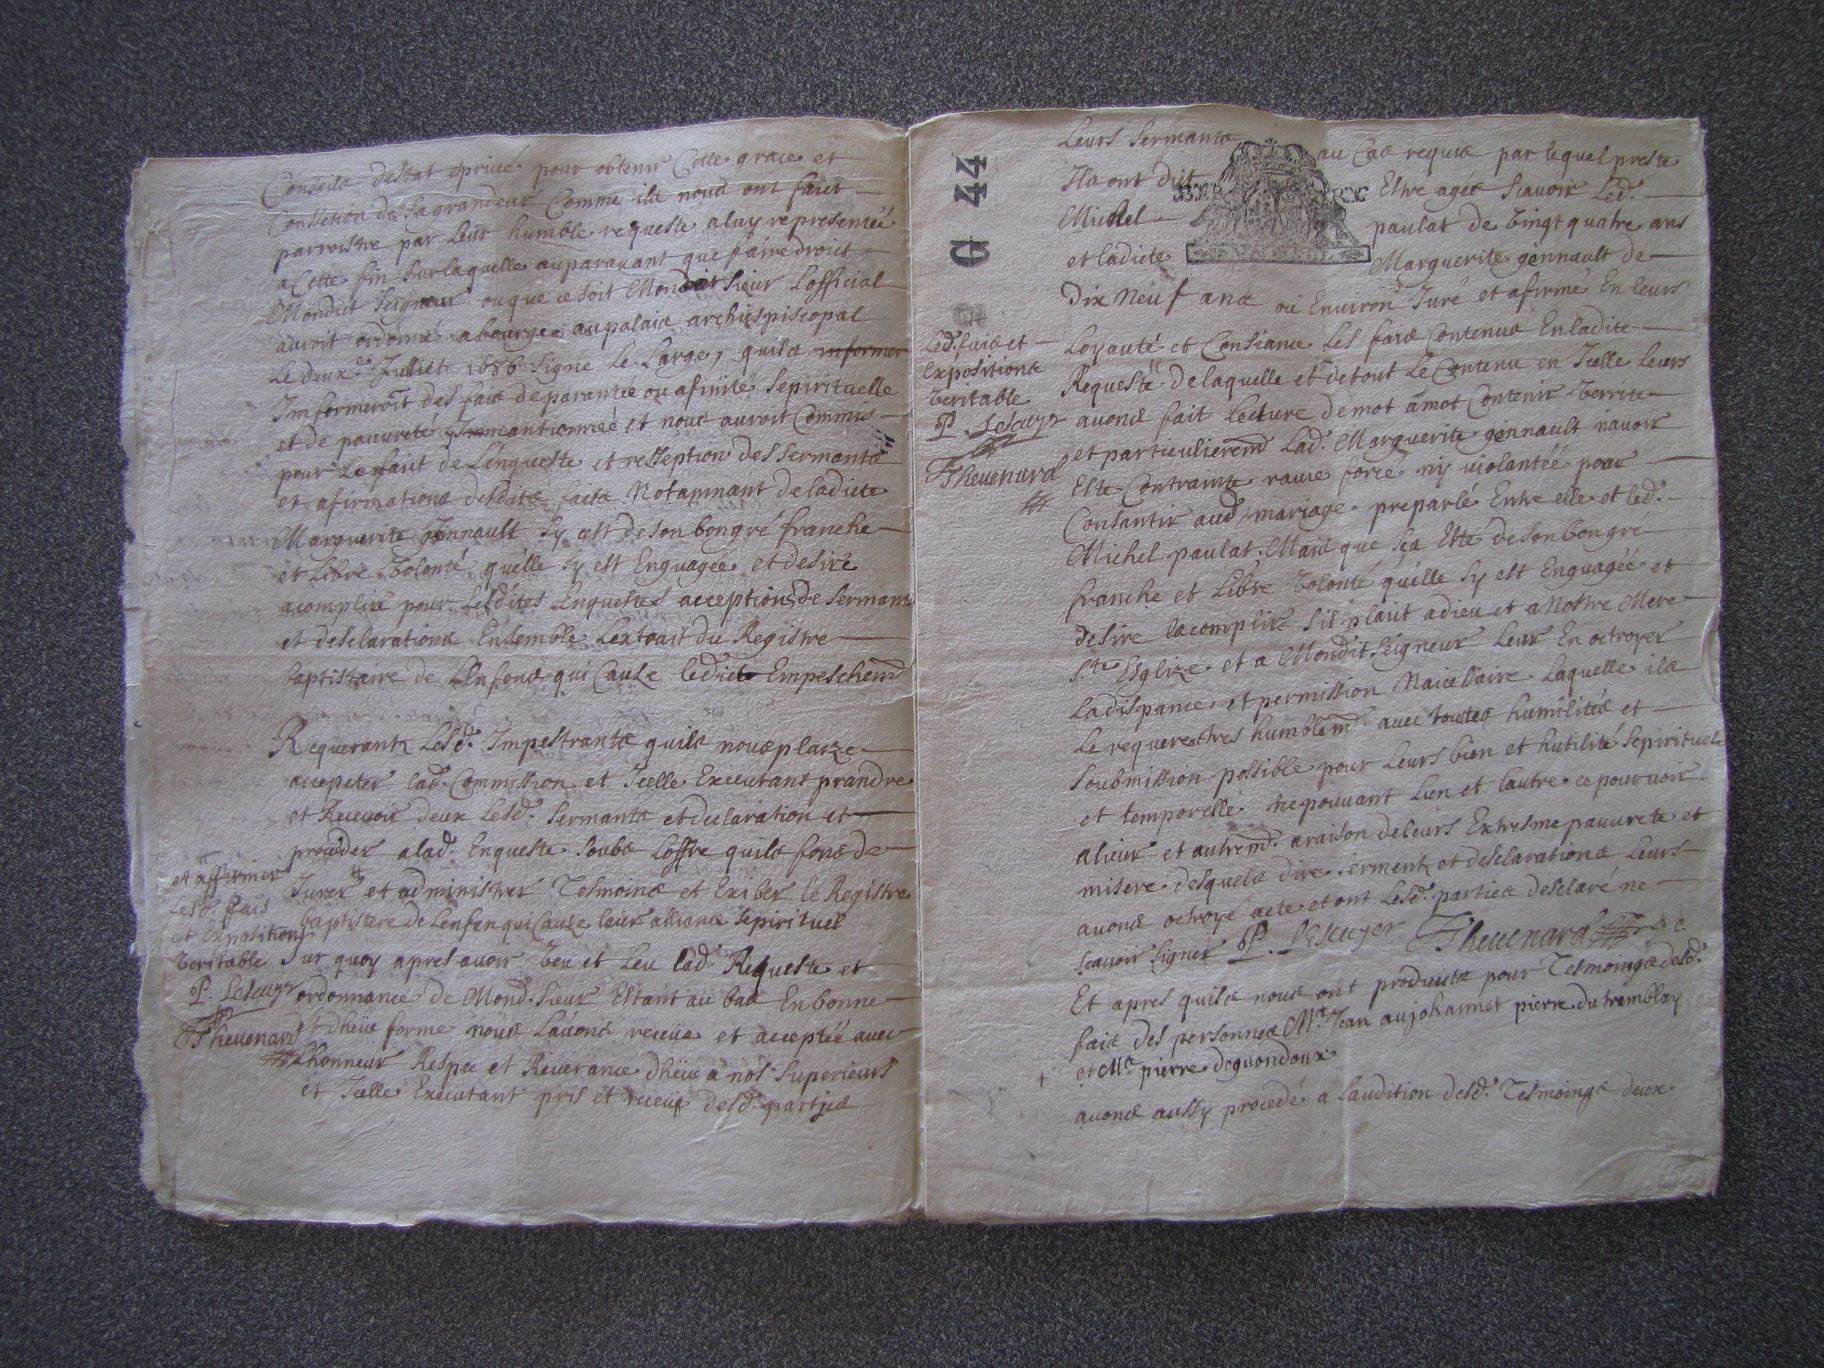 Conseils destat & privé pour obtenir Cette grace et
Conssetion de Sagrandeur Comme ils nous ont faict
parroistre par Leur humble requeste a luy representéé
a Cette fin Surlaquelle auparauant que faire droict
Mondict Seigneur ou que ce soit Mondict Sieur Lofficial
auroit ordonné a bourges au palais archiepiscopal
Le deux.e Juillet 1686 Signé Le Large, quils informer
Imformeroit des fais de parantée ou afinité Sepirituelle
et de pauureté mantionnéé et nous auroit Commis
pour Le faict de Lenqueste et resseption des Sermants
et afirmations desdits faits Notamnant de ladicte
Marguerite gennault Sy cest de son bon gré franche
et Libre Volonté quelle Sy est Enguagéé et desire
acomplir pour Lesdites Enquestes acceptions de Sermans
et desclarations Ensemble Lextrait du Registre
baptistaire de LEnfens qui Cause ledict Empeschemt
Requerants Lesd. Impestrants quils nous plaize
accepeter lad. Commission et Icelle Executant prandre
et Receuoir deux Lesd. Sermants et declaration et
proceder a lad. Enqueste Soubs Loffre quils fons de
Jurer et administrer Tesmoins et Exiber le Registre
baptistere de Lenfen qui Cause leur alliance Sepirituel
et affirmer
Lesd. fais
et expositions
Veritable
P. Lescuyr
Theuenard
Sur quoy apres auoir Veu et Leu lad. Requeste et
ordonnance de Mond. Sieur Estant au bas En bonne
et dheue forme nous Lauons receue et acceptéé auec
Lhonneur Respec et Reuerance dheue a nos Superieurs
et Icelle Executant pris et receue desd. parties
G 44
Leurs Sermants au Cas requis par lequel preste
Ils ont dict Estre agés Scauoir Led.
Michel paulat de Vingt quatre ans
et ladicte Marguerite gennault de
Dix Neuf ans ou Enuiron Juré et afirmé En leurs
Loyauté et Consiance Les fais Contenus En ladite
Requeste de laquelle et de tout Le Contenu en Icelle Leurs
auons fait Lecture de mot amot Contenir Verrite
et particulieremt Lad. Marguerite gennault nauoir
Este Contrainte rauie force ny violantéé pour
Consantir aud. mariage preparlé Entre elle et led.
Michel paulat. Mais que sça Esté de son bon gré
franche et Libre Volonté quelle Sy est Enguagéé et
desire lacomplir Sil plait a dieu et a Nostre Mere
Ste Esglize et a Mondit Seigneur Leur En octroyer
La dispance et permission Naicessaire Laquelle ils
Le requere tres humblemt auec toutes humilités et
Soubmission possible pour Leurs bien et hutilité Sepirituele
et temporelle ne pouuant Lun et Lautre ce pouruoir
alieur et autremt a raison de leurs Extresme pauurete et
misere desquels dire serments et desclarations Leurs
auons octroyé acte et ont Lesd. parties desclaré ne
scauoir Signer P. Lescuyer Theuenard
Led. fais et
Expositions
Veritable
P. Lescuyr
Theuenard
Et apres quils nous ont produits pour Tesmoings desd.
fais des personnes Mre Jean aujohannet pierre du tremblay
et Mre pierre deguondoux
auons aussy procedé a laudition desd. Tesmoings deux